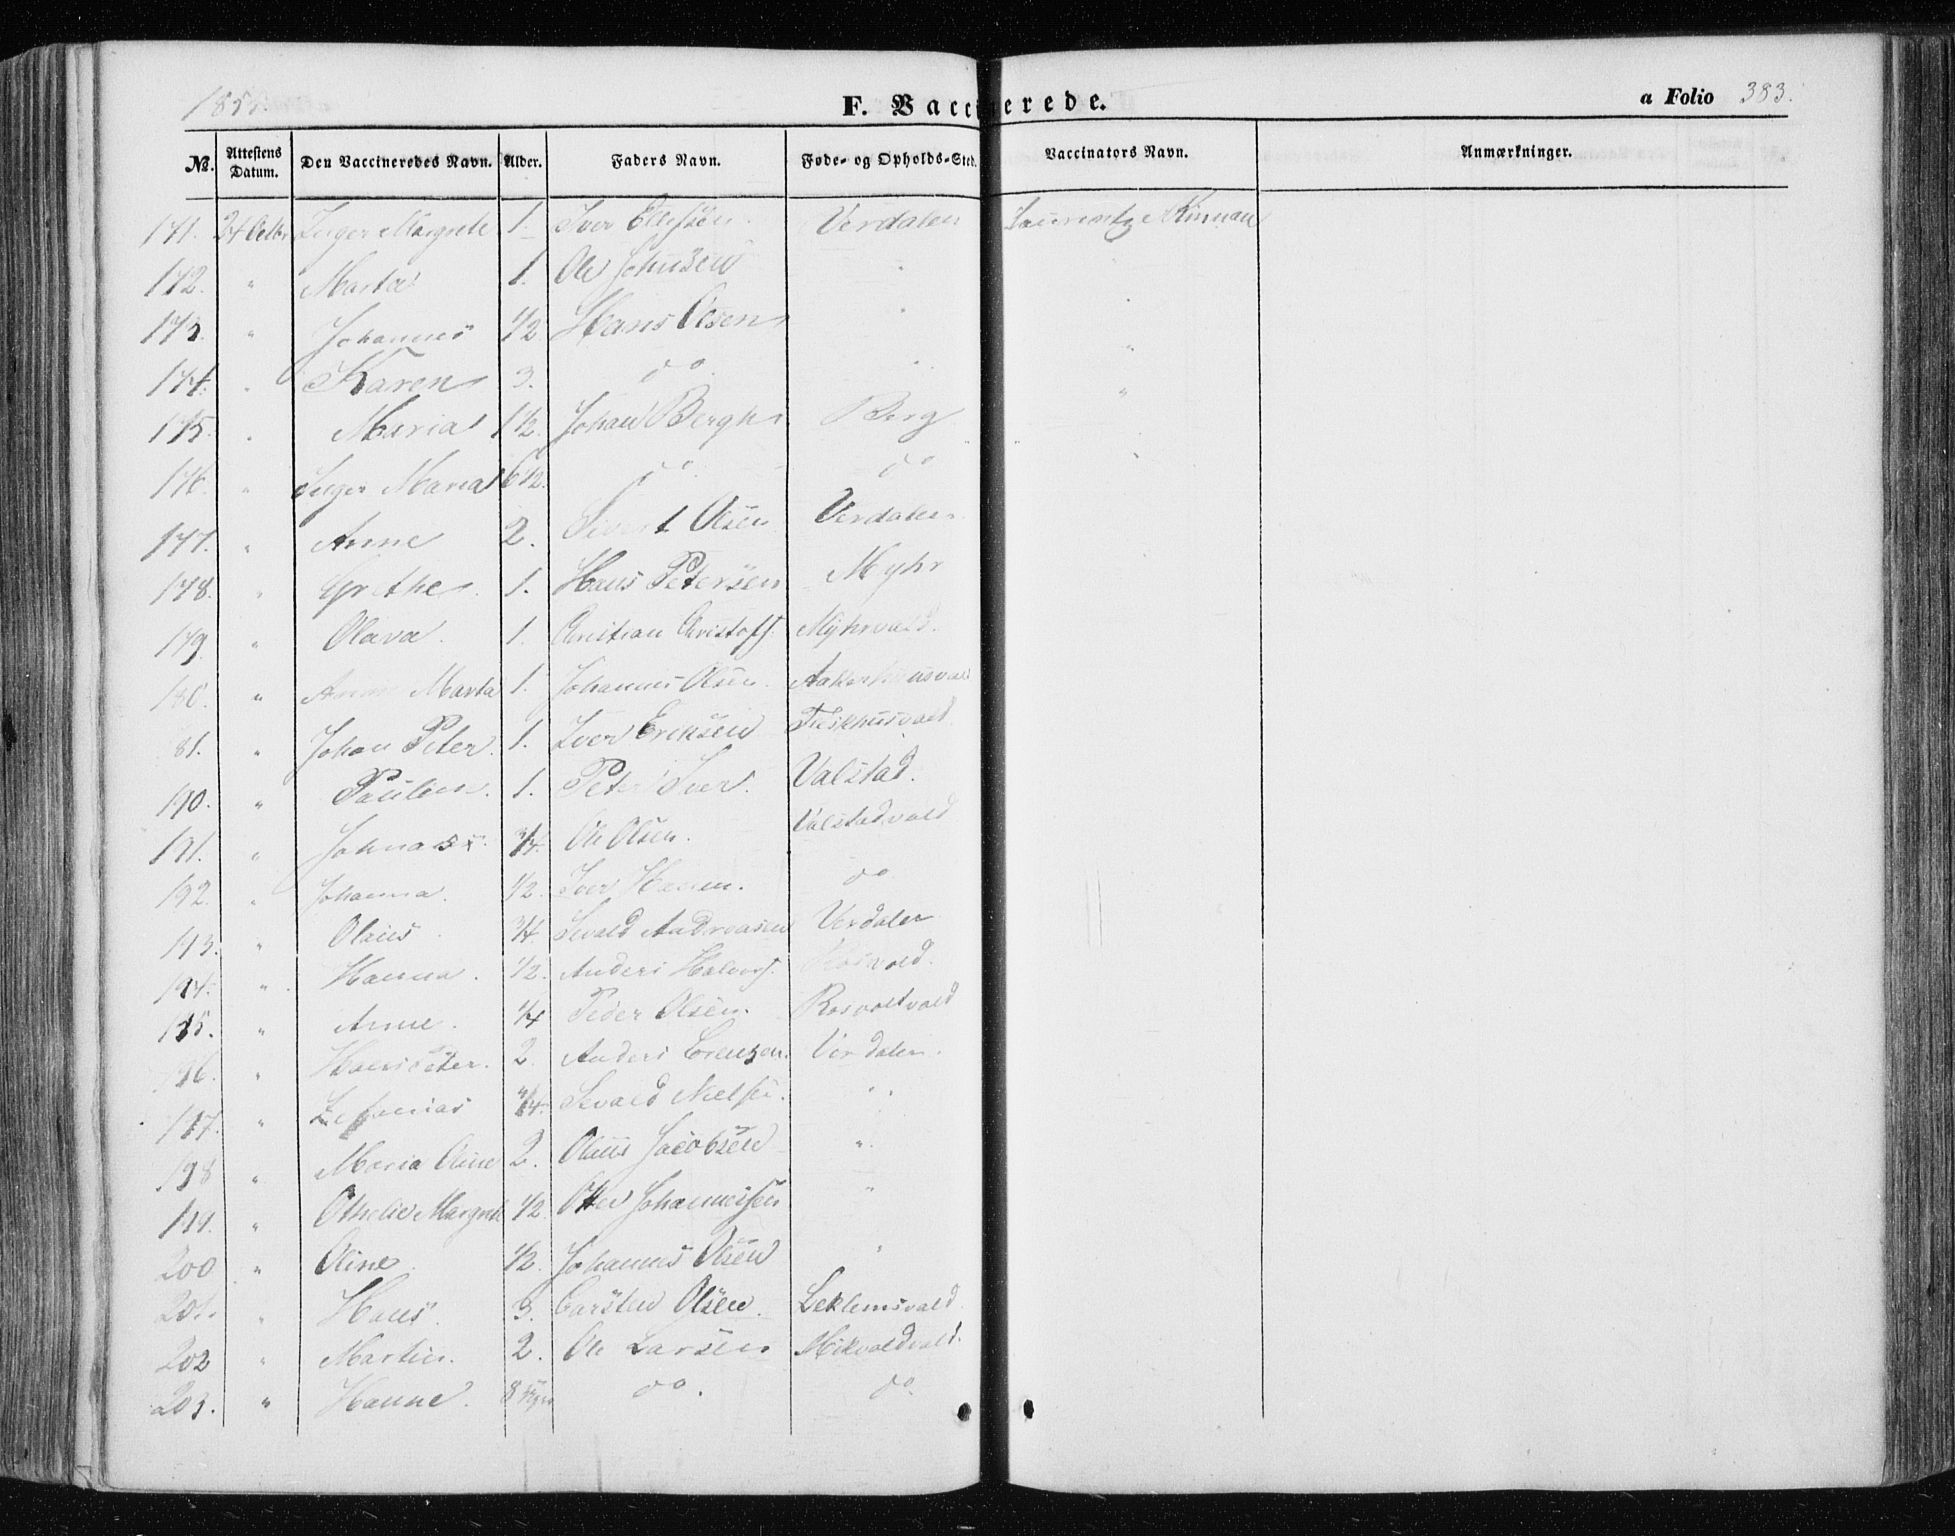 185
F. Vaccinerede.
a Folio 383.
No. Attestens Datum. Den Vaccineredes Navn. Alder. Faders Navn. Føde- og Opholds-Sted. Vaccinators Navn. Anmærkninger.
171. 24 Octbr Inger Margrete 1. Iver Ellefsen Verdalen Laurentz Kinnan
172. " Marta 1. Ole Johnsen "
173. " Johannes 1/2 Hans Olsen "
174. " Karen 3. do "
175. " Maria 1 1/2. Johan Bergh Berg "
176. " Inger Maria 6 1/2. do do
177. " Anne 2. Sivert Olsen Verdalen
178. " Grethe 1. Hans Petersen Myhr
179. " Olava. 1. Christian Christoffs. Myhrvald.
180. " Anne Marta 1. Johannes Olsen Aakerhusvald
81. " Johan Peter. 1. Iver Eriksen
190. " Paulin. 1. Peter Iver. Valstad.
191. " Johnas. 3/4. Ole Olsen. Valstadvald
192. " Johanna. 1/2. Iver Hansen. do
193. " Olaus. 3/4. Sevald Andreasen Verdalen
194. " Hanna. 1/2. Anders Halvors.
195. " Anne. 1/4 Peder Olsen. Rosvoldvald
196. " Hans Peter. 2. Anders Verdalen.
197. " Zefanias 3/4. Sevald Nielsen. "
198 " Maria Oline 2. Olaus Jacobsen ".
199. " Othelie Margrete 1/2. Otter Johannessen "
200 " Oline. 1/2. Johannes Olsen "
201. " Hans. 3. Carsten Olsen. Leklemsvald
202 " Martin. 2. Ole Larsen
203. " Hanne. 8 do. do.